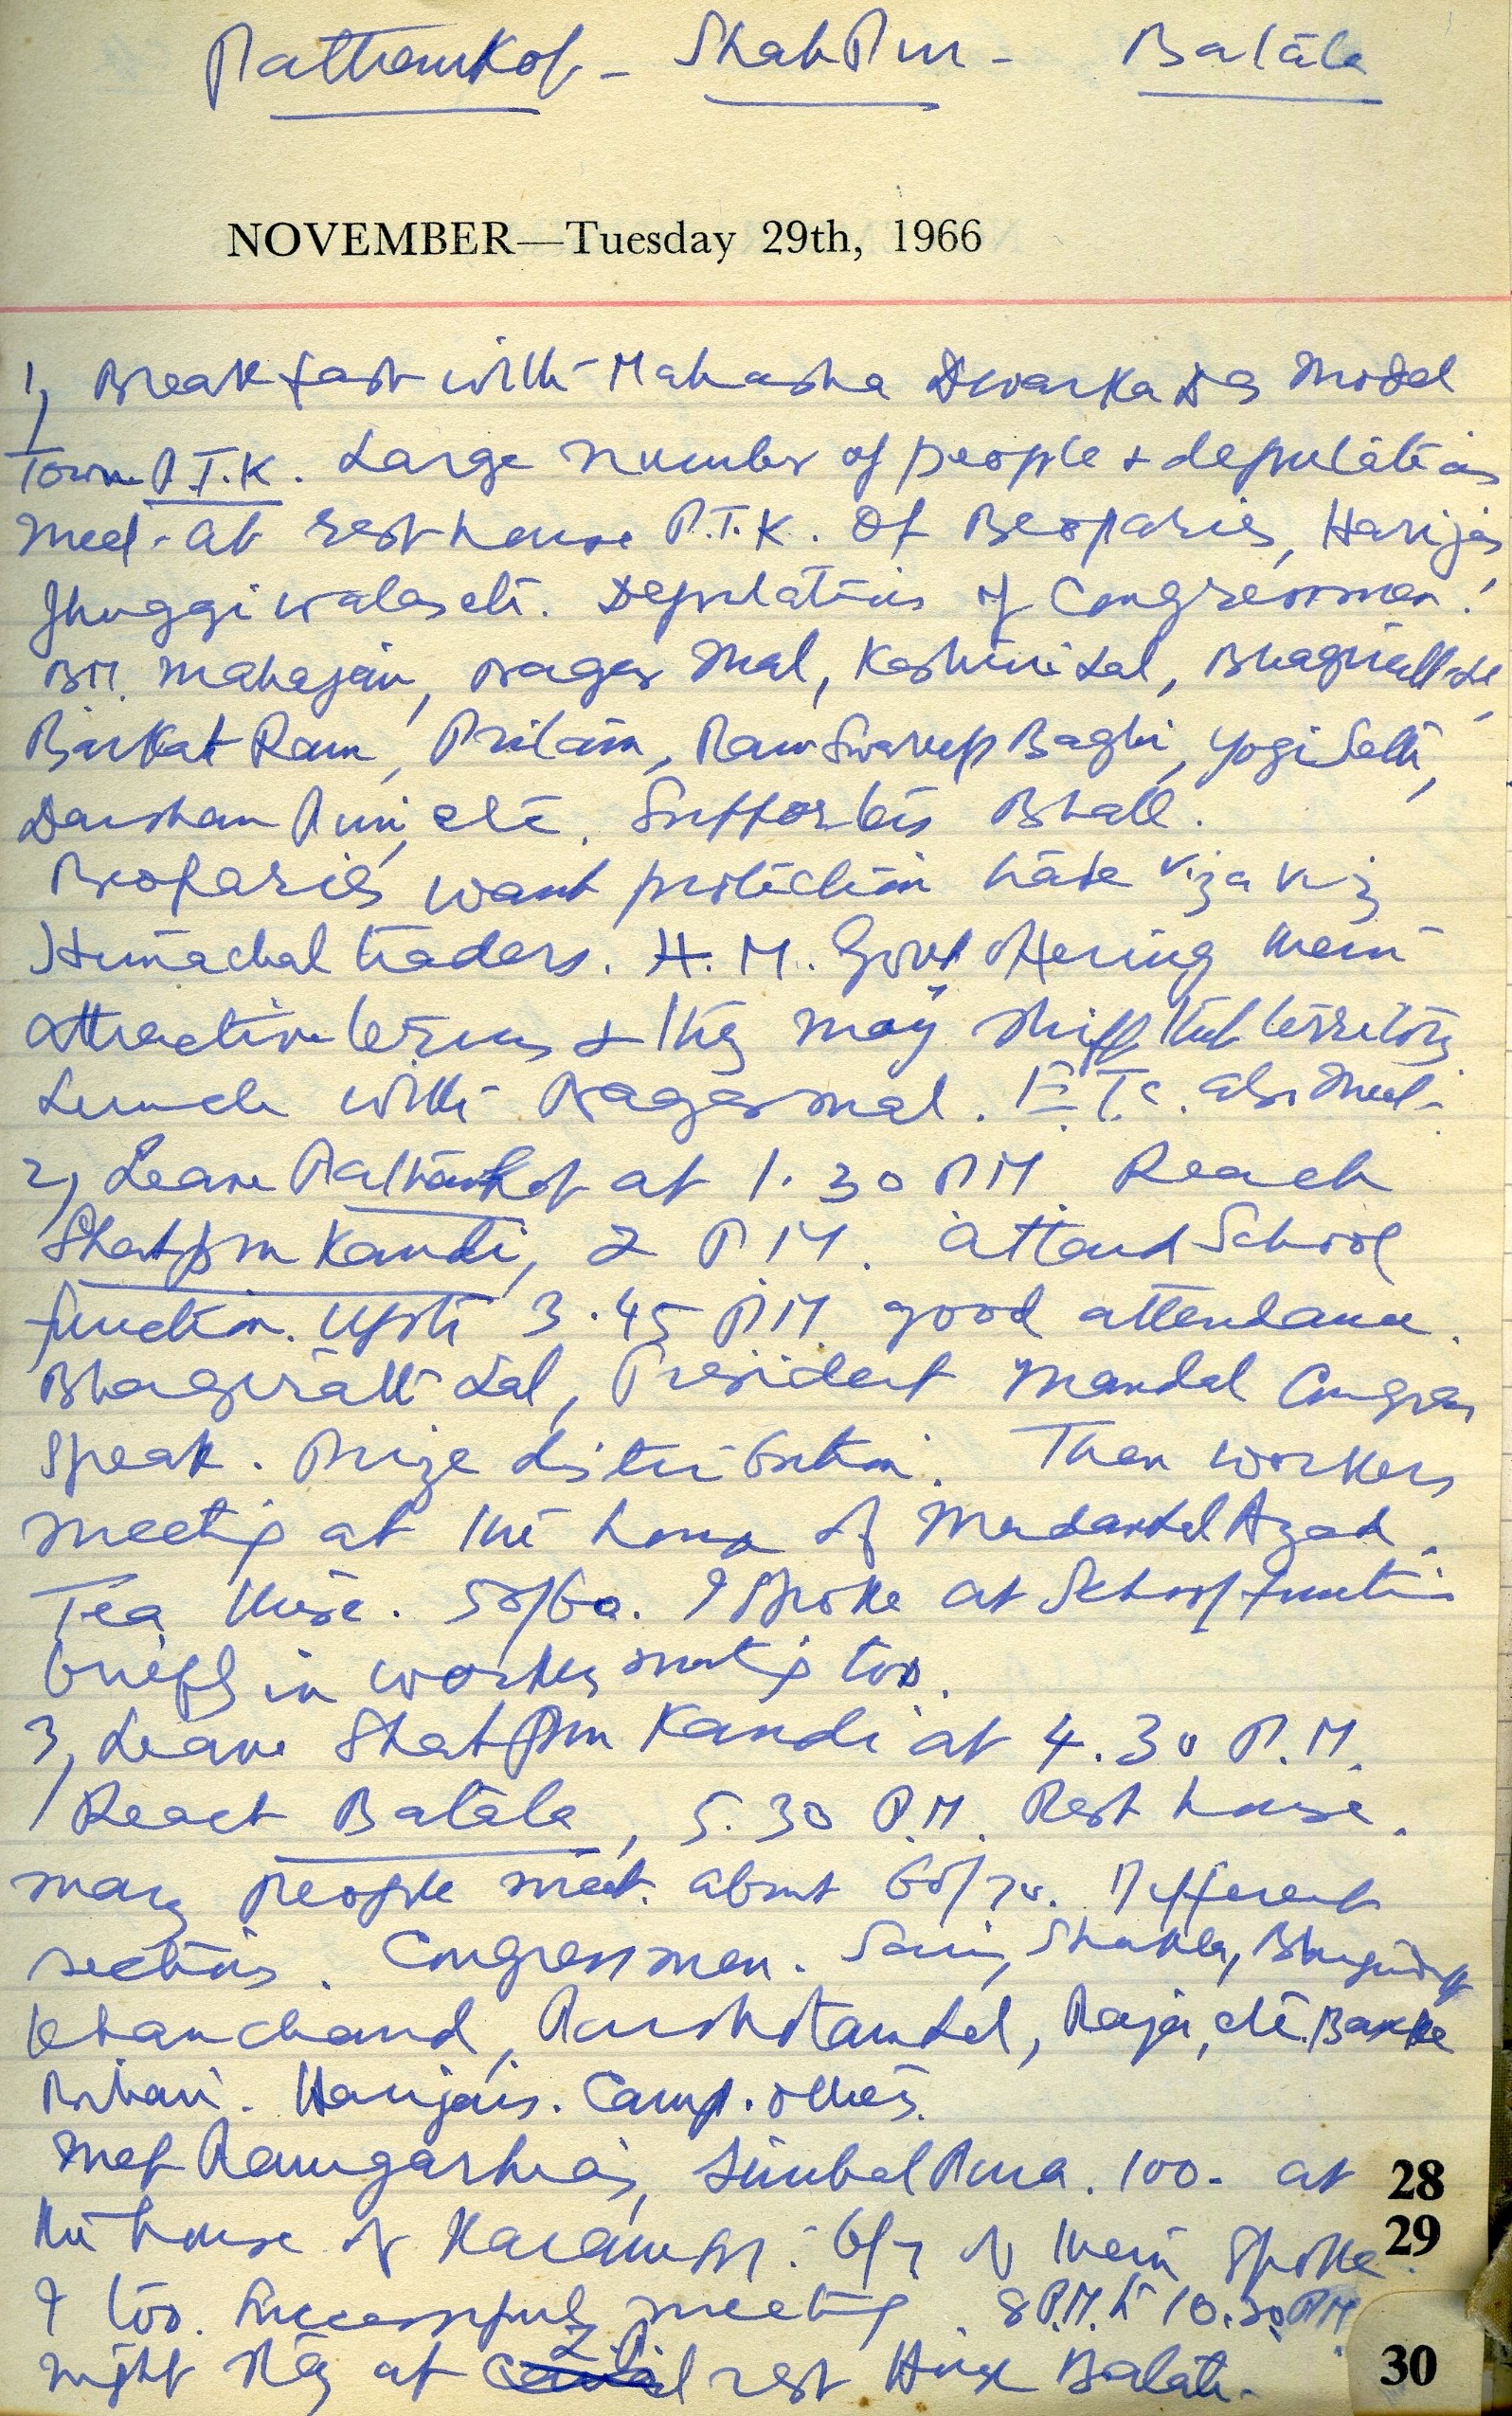 Pathankot - ShahPur - Batala
NOVEMBER—Tuesday 29th, 1966
1, Breakfast with Mahasha Dwarka Das Model
Town P.T.K. Large number of people & deputations
meet at rest house P.T.K. Of Beoparies, Harijans
Jhuggi walas etc. Deputations of Congressmen.
BM. Mahajan, Nagar Mal, Kashmiri Lal, Bhagirath Lal,
Barkat Ram, Pritam, Ram Swarup Baghi, Yogi Sethi,
Darshan Puri, etc. Supporters Bhall.
Beoparies want protection trade viz a viz
Himachal traders. H.M. Govt offering them
attractive terms & they may shift that territory
Lunch with Nagarmal. E.T.C. also meet.
2, Leave Pathankot at 1.30 PM. Reach
Shahpur Kandi, 2 P.M. attend School
function. Upto 3.45 P.M. good attendance.
Bhagirath Lal, President Mandal Congress
Speak. Prize distribution. Then workers
meeting at the house of Madan Lal Azad.
Tea there. 50/60. I spoke at School function
briefly in workers meeting too.
3, Leave Shahpur Kandi at 4.30 P.M.
Reach Batala, 5.30 P.M. Rest house.
many people meet. about 60/70. Different
sections. Congressmen. Saini, Shukla,
Khanchand, Purshotam Lal, Raja, etc. Banke
Bihari. Harijans. Camp. others.
Met Ramgarhias, Simbal Pura. 100. at
the house of 6/7 of them spoke.
I too. Successful meeting. 8 P.M. to 10.30 PM
night stay at rest House Batala.
28
29
30